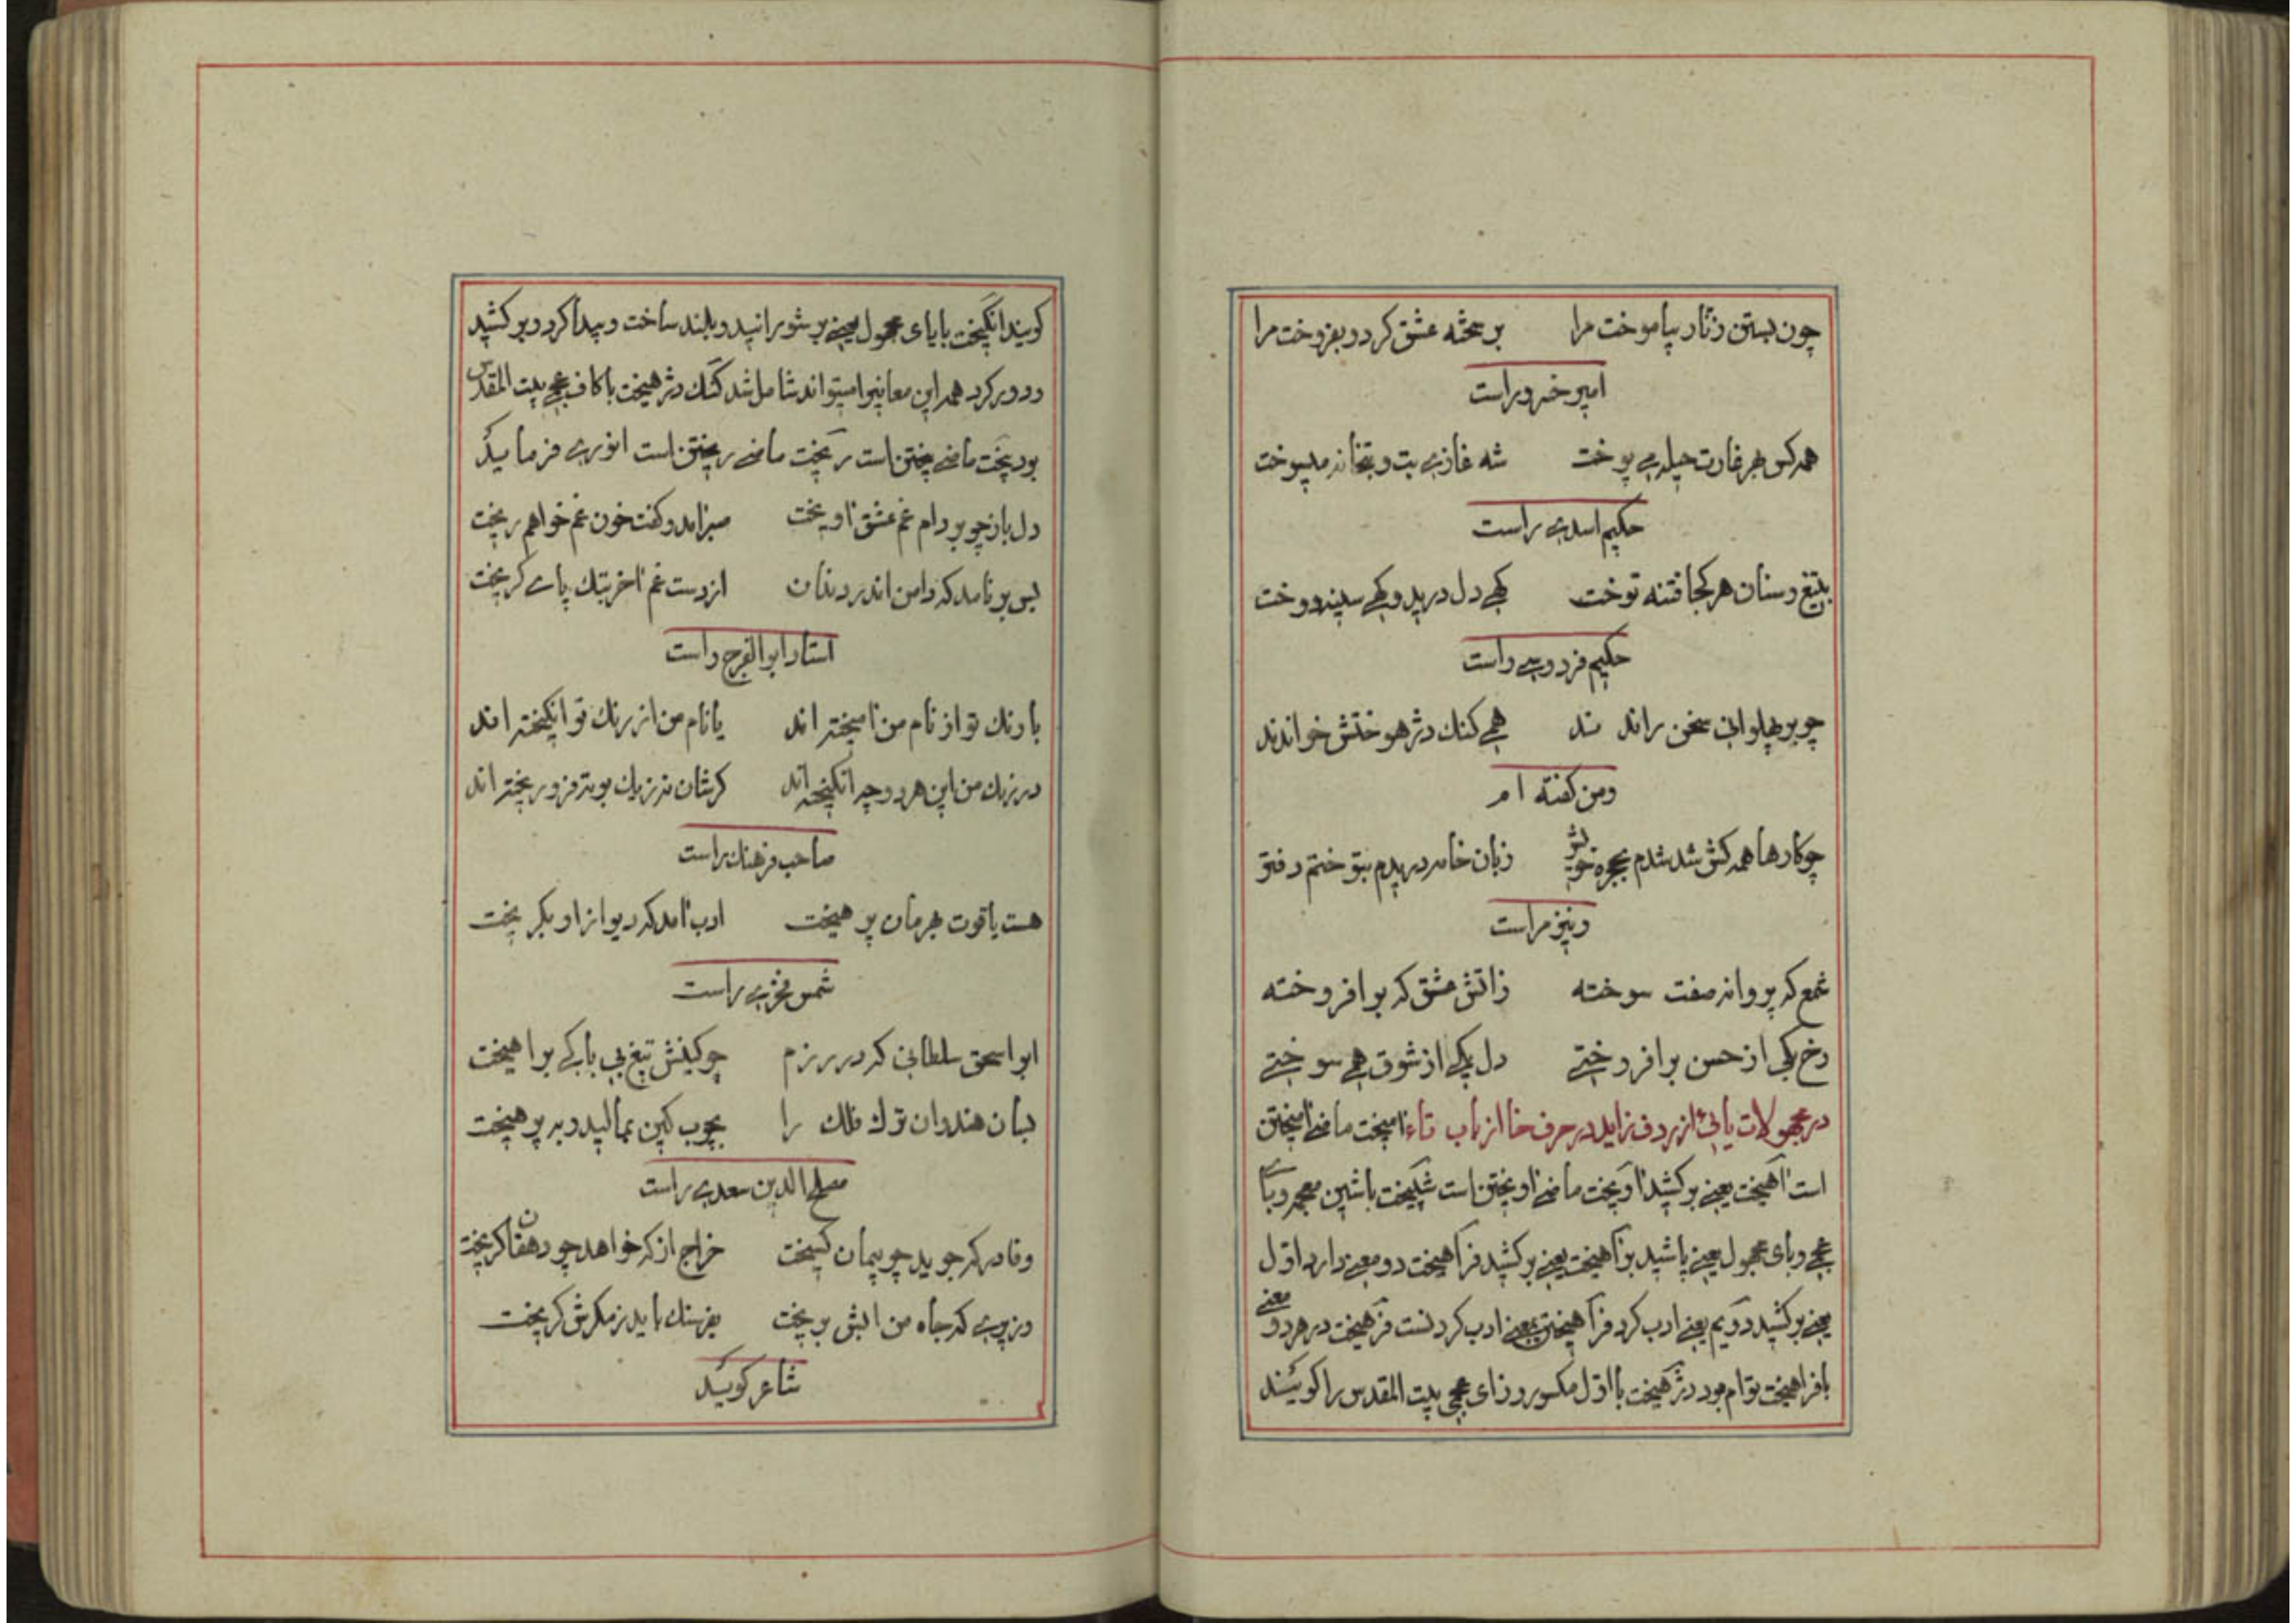 چون بستن زنار بیاموخت مرا بر سخته عشق کرد و بفروخت مرا
امیر خسرو راست
همه کس بهر غارت حیله می پوخت شه غازی بت و بتخانه میسوخت
حکیم اسدی راست
بتیغ و سنان هر کجا فتنه توخت کهی دل درید و کهی سینه دوخت
حکیم فردوسی راست
چو بر پهلوانی سخن راندند همی کنک دژهوختش خواندند
و من کفته ام
چو کارها همه کش شد شدم بحجره خویش زبان خامه دریدم بتوختم دفتر
و نیز مراست
شمع که پروانه صفت سوخته زاتش عشق که بر افروخته
رخ یکی از حسن بر افروختی دل یکی از شوق همی سوختی
در مجهولات یائی از ردف زاید در حرف خا از باب تاء امیخت ماضی امیختن
است اهیخت یعنی بر کشید اویخت ماضی اویختن است شپیخت باشین معجمه و بای
عجمی و یای مجهول یعنی پاشید بر اهیخت یعنی بر کشید فراهیخت دو معنی دارد اول
یعنی بر کشید دویم یعنی ادب کرد فراهیختن بمعنی ادب کردنست فرهیخت در هر دو معنی
با فراهیخت توام بود دژهیخت با اول مکسور و زای عجمی بیت المقدس را کویند
کویند انکیخت با یای مجهول یعنی بر شورانید و بلند ساخت و پیدا کرد و بر کشید
و دور کرد همه این معانیرا میتواند شامل شد کنک دژهیخت با کاف عجمی بیت المقدس
بود بیخت ماضی بیختن است ریخت ماضی ریختن است انوری فرماید
دل باز چو بر دام غم عشق اویخت صبر امد و کفت خون غم خواهم ریخت
بس بر نامد که دامن اندر دندان از دست غم اخر بتک پای کریخت
استاد ابو الفرج راست
با رنک تو از نام من امیخته اند یا نام من از رنک تو انکیخته اند
در رنک من این هر دو چه انکیخته اند کرشان نه زیک بوته فرو ریخته اند
صاحب فرهنک راست
هست یاقوت بهرمان پرهیخت ادب امد که دیو از او بکریخت
شمس فخری راست
ابو اسحق سلطانی که در رزم چو کینش تیغ بی باکی بر اهیخت
بسان هندوان ترک فلک را بچوب کین بمالید و به پرهیخت
مصلح الدین سعدی راست
وفا در که جوید چو پیمان کسیخت خراج از که خواهد چو دهقان کریخت
وزیری که جاه من ابش بریخت بفرسنک باید زمکرش کریخت
شاعر کوید